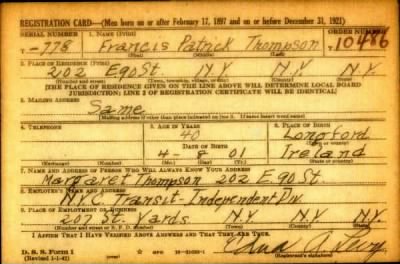 REGISTRATION CARD—(Men born on or after February 17, 1897 and on or before December 31, 1921)
SERIAL NUMBER 1. NAME (Print) ORDER NUMBER
T-778 Francis Patrick Thompson T10486
(First) (Middle) (Last)
2. PLACE OF RESIDENCE (Print)
202 E 90 St N.Y. N.Y.
(Number and street) (Town, township, village, or city) (County) (State)
[THE PLACE OF RESIDENCE GIVEN ON THE LINE ABOVE WILL DETERMINE LOCAL BOARD
JURISDICTION; LINE 2 OF REGISTRATION CERTIFICATE WILL BE IDENTICAL]
3. MAILING ADDRESS
Same
[Mailing address if other than place indicated on line 2. If same insert word same]
4. TELEPHONE 5. AGE IN YEARS 6. PLACE OF BIRTH
40 Longford
DATE OF BIRTH (Town or county)
4-8 01 Ireland
(Exchange) (Number) (Mo.) (Day) (Yr.) (State or country)
7. NAME AND ADDRESS OF PERSON WHO WILL ALWAYS KNOW YOUR ADDRESS
Margaret Thompson 202 E 90 St.
8. EMPLOYER'S NAME AND ADDRESS
N.Y.C. Transit-Independent Div
9. PLACE OF EMPLOYMENT OR BUSINESS
207 St. Yards N.Y. N.Y.
(Number and street or R. F. D. number) (Town) (County) (State)
I AFFIRM THAT I HAVE VERIFIED ABOVE ANSWERS AND THAT THEY ARE TRUE.
D. S. S. Form 1
(Revised 1-1-42) (over)